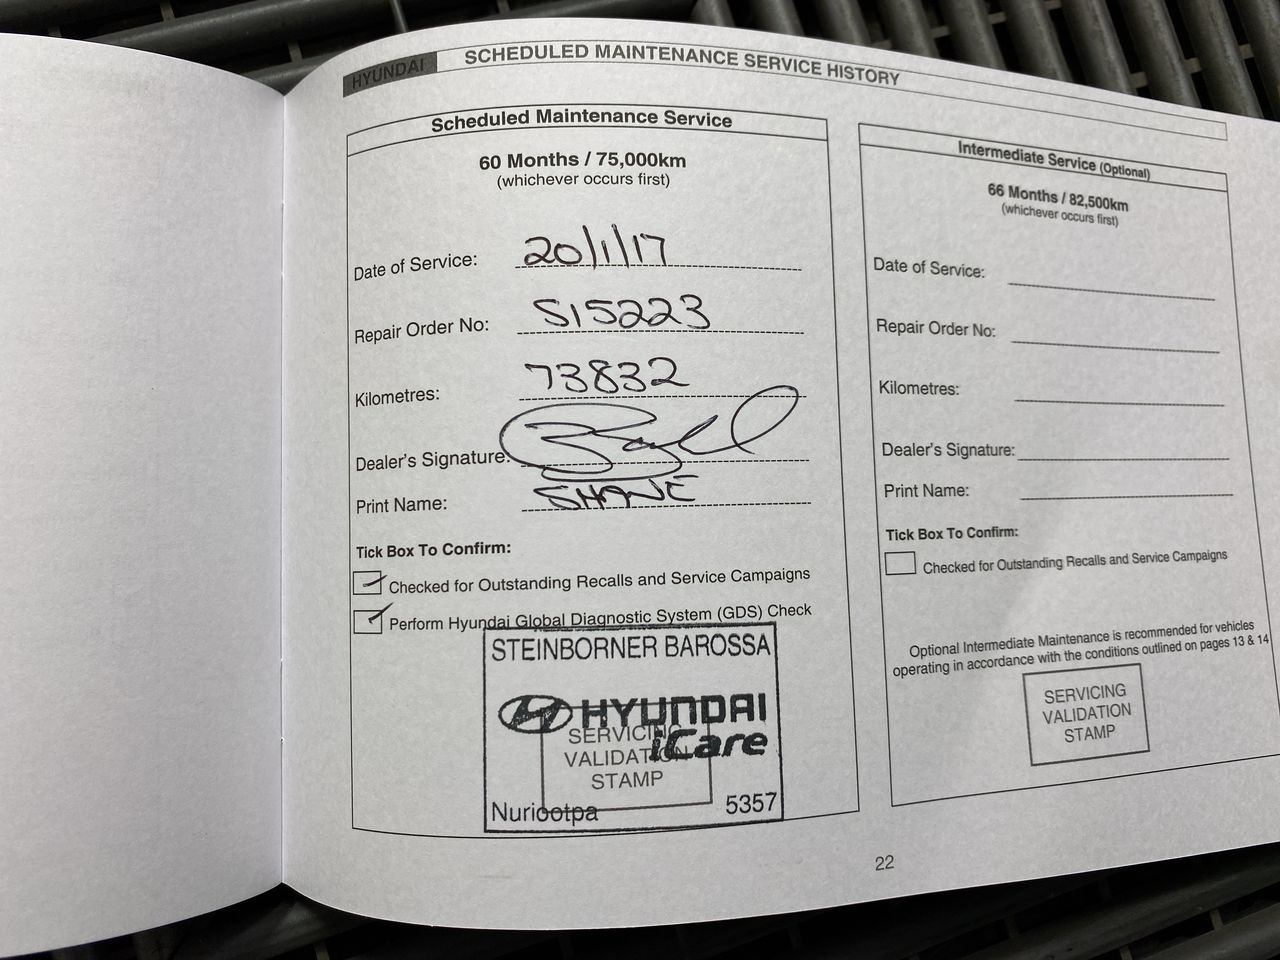 HYUNDAI SCHEDULED MAINTENANCE SERVICE HISTORY
Scheduled Maintenance Service
60 Months / 75,000km
(whichever occurs first)
Date of Service: 20/1/17
Repair Order No: S15223
Kilometres: 73832
Dealer's Signature:
Print Name: SHANE
Tick Box To Confirm:
Checked for Outstanding Recalls and Service Campaigns
Perform Hyundai Global Diagnostic System (GDS) Check
STEINBORNER BAROSSA
HYUNDAI
iCare
SERVICING
VALIDATION
STAMP
Nuriootpa 5357
Intermediate Service (Optional)
66 Months / 82,500km
(whichever occurs first)
Date of Service:
Repair Order No:
Kilometres:
Dealer's Signature:
Print Name:
Tick Box To Confirm:
Checked for Outstanding Recalls and Service Campaigns
Optional Intermediate Maintenance is recommended for vehicles
operating in accordance with the conditions outlined on pages 13 & 14
SERVICING
VALIDATION
STAMP
22